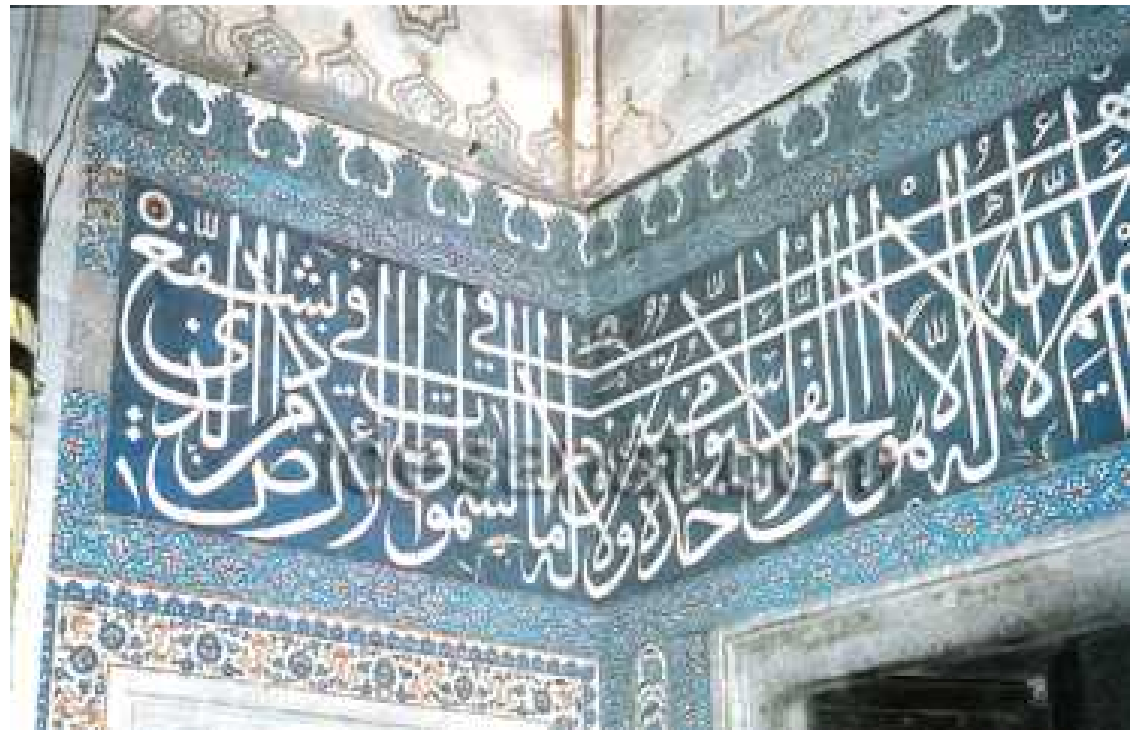 الله لا إله إلا هو الحي القيوم لا تأخذه سنة ولا نوم له ما في السموات وما في الأرض من ذا الذي يشفع